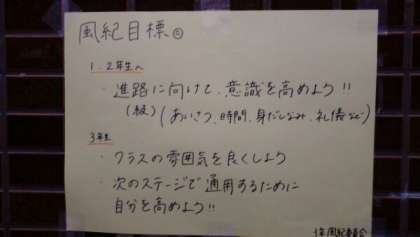 風紀目標
1、2年生へ
・進路に向けて、意識を高めよう!!
(級)(あいさつ、時間、身だしなみ、礼儀など)
3年生
・クラスの雰囲気を良くしよう
・次のステージで通用するために
自分を高めよう!!
風紀委員会